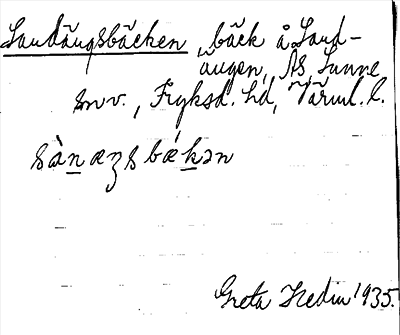 Sandängsbäcken, bäck å Sand-
ängen, Ås, Sunne
sn v., Fryksd. hd, Värml. l.
sànæŋsbækən
Greta Hedin 1935.